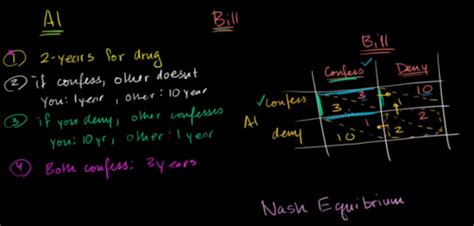 Al
Bill
1 2-years for drug
2 if confess, other doesnt
you: 1 year, other: 10 year
3 if you deny, other confesses
you: 10 yr, other: 1 year
4 Both confess: 3 years
Bill
Confess Deny
Al
confess 3 3 1 10
deny 10 1 2 2
Nash Equibrium